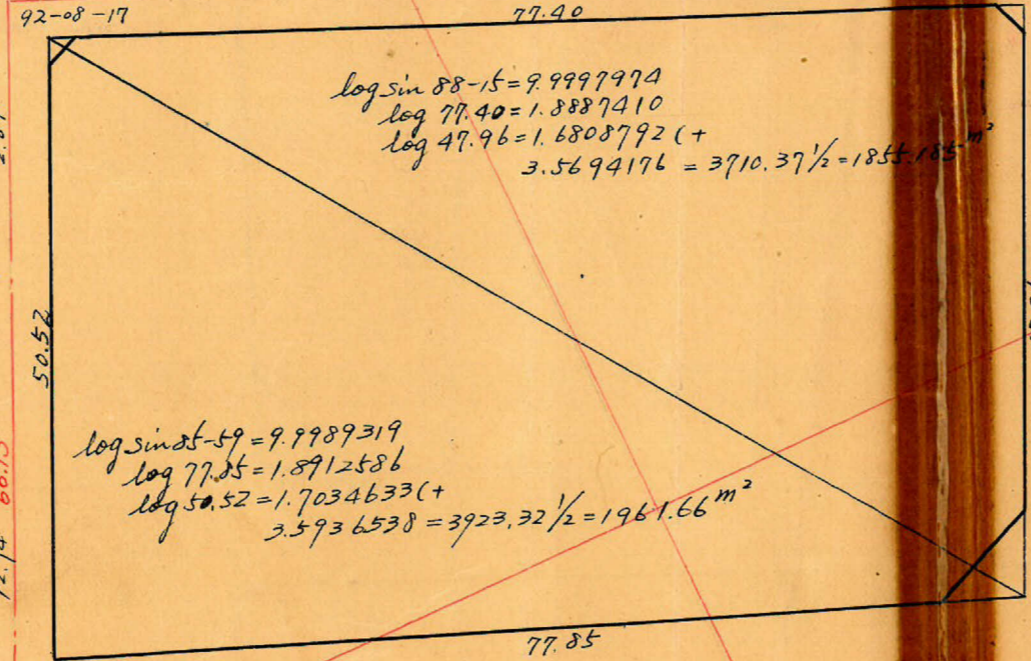 92-08-17
77.40
log sin 88-15 = 9.9997974
log 77.40 = 1.8887410
log 47.96 = 1.6808792 (+
3.5694176 = 3710.37 1/2 = 1855.185 m²
50.52
log sin 85-59 = 9.9989319
log 77.85 = 1.8912586
log 50.52 = 1.7034633 (+
3.5936538 = 3923.32 1/2 = 1961.66 m²
77.85